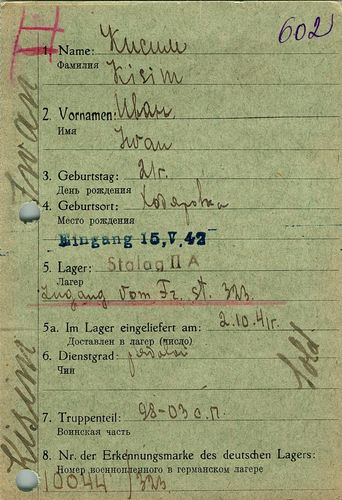 602
1. Name: Кисим
Фамилия Kisim
2. Vornamen: Иван
Имя Iwan
3. Geburtstag: 21г.
День рождения
4. Geburtsort: Ходяровка
Место рождения
Eingang 15.V.42
5. Lager: Stalag II A
Лагер
Zugang vom Fr. St. 323
5a. Im Lager eingeliefert am: 2.10.41г.
Доставлен в лагер (число)
6. Dienstgrad: рядовой
Чин
7. Truppenteil: 98-03 с.п.
Воинская часть
8. Nr. der Erkennungsmarke des deutschen Lagers:
Номер военнопленного в германском лагере
10044/323
Kisim Iwan
Sold.